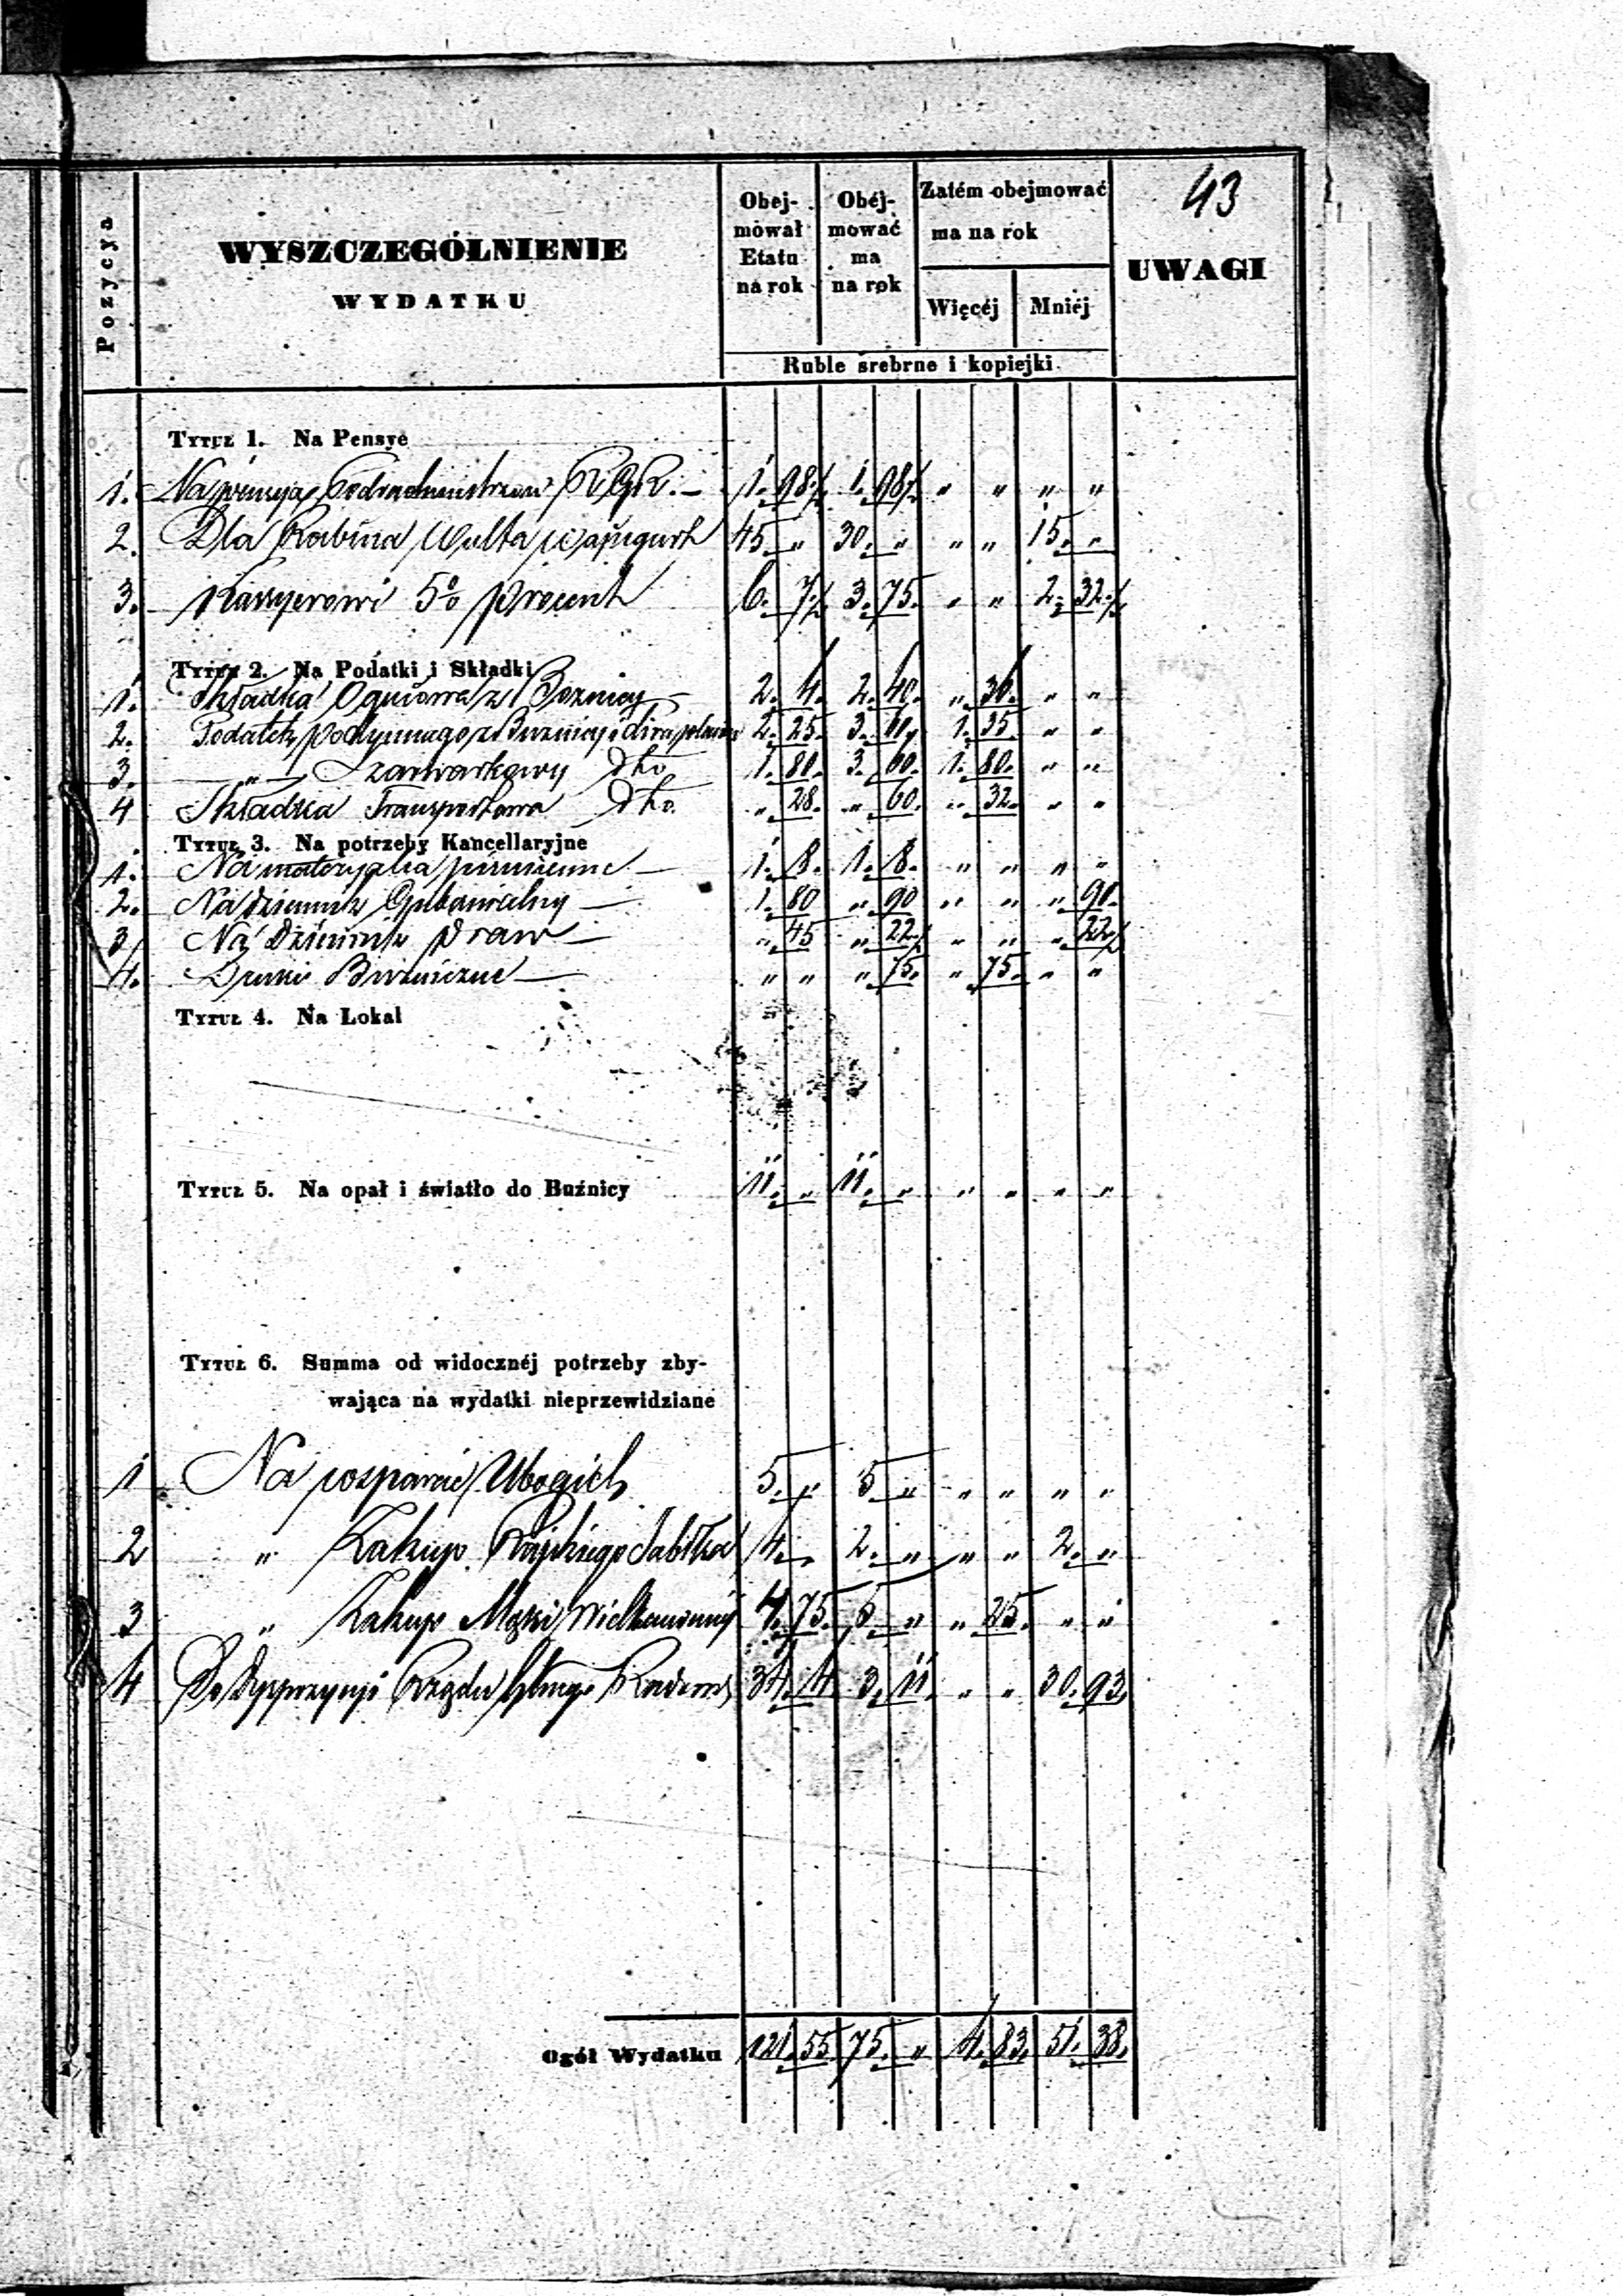 43
Pozycya
WYSZCZEGÓLNIENIE
WYDATKU
Obej-
mował
Etatu
na rok
Obéj-
mować
ma
na rok
Zatém obejmować
ma na rok
Więcéj
Mniéj
UWAGI
Ruble srebrne i kopiejki
Tytuł 1. Na Pensye
1. Na pensyą 1. 98½ 1. 98½ " " " "
2. Dla Rabina 45 " 30. " " " 15. "
3. Kassyerowi 5% procent 6. 7½ 3. 75. " " 2. 32½
Tytuł 2. Na Podatki i Składki
1. Składka Ogniowa z Boznicy 2. 4. 2. 40. " 36. " "
2. Podatek podymnego z Buznicy i 2. 25. 3. 60. 1. 35. " "
3. " Szarwarkowy dto 1. 80. 3. 60. 1. 80. " "
4 Składka Transportowa dto. " 28. " 60. " 32. " "
Tytuł 3. Na potrzeby Kancellaryjne
1. Na materyalia piśmienne 1. 8. 1. 8. " " " "
2. Na Dziennik Gubernialny 1. 80 " 90 " " " 90.
3 Na Dziennik Praw " 45 " 22½ " " " 22½
4. Druki Bużniczne " " " 75. " 75. " "
Tytuł 4. Na Lokal
Tytuł 5. Na opał i światło do Buźnicy 11. " 11. " " " " "
Tytuł 6. Summa od widocznéj potrzeby zby-
wająca na wydatki nieprzewidziane
1 Na wsparcie Ubogich 5. " 5 " " " " "
2 " Zakup Rajskiego Jabłka 4. " 2. " " " 2. "
3 " Zakup Mąki Wielkanocnej 4. 75. 5 " " 25. " "
4 Do Dyspozycyi Rządu Gbnego Radoms 34. 4 3. 11. " " 30. 93.
Ogół Wydatku 121. 55 75. " 4. 83. 51. 38.